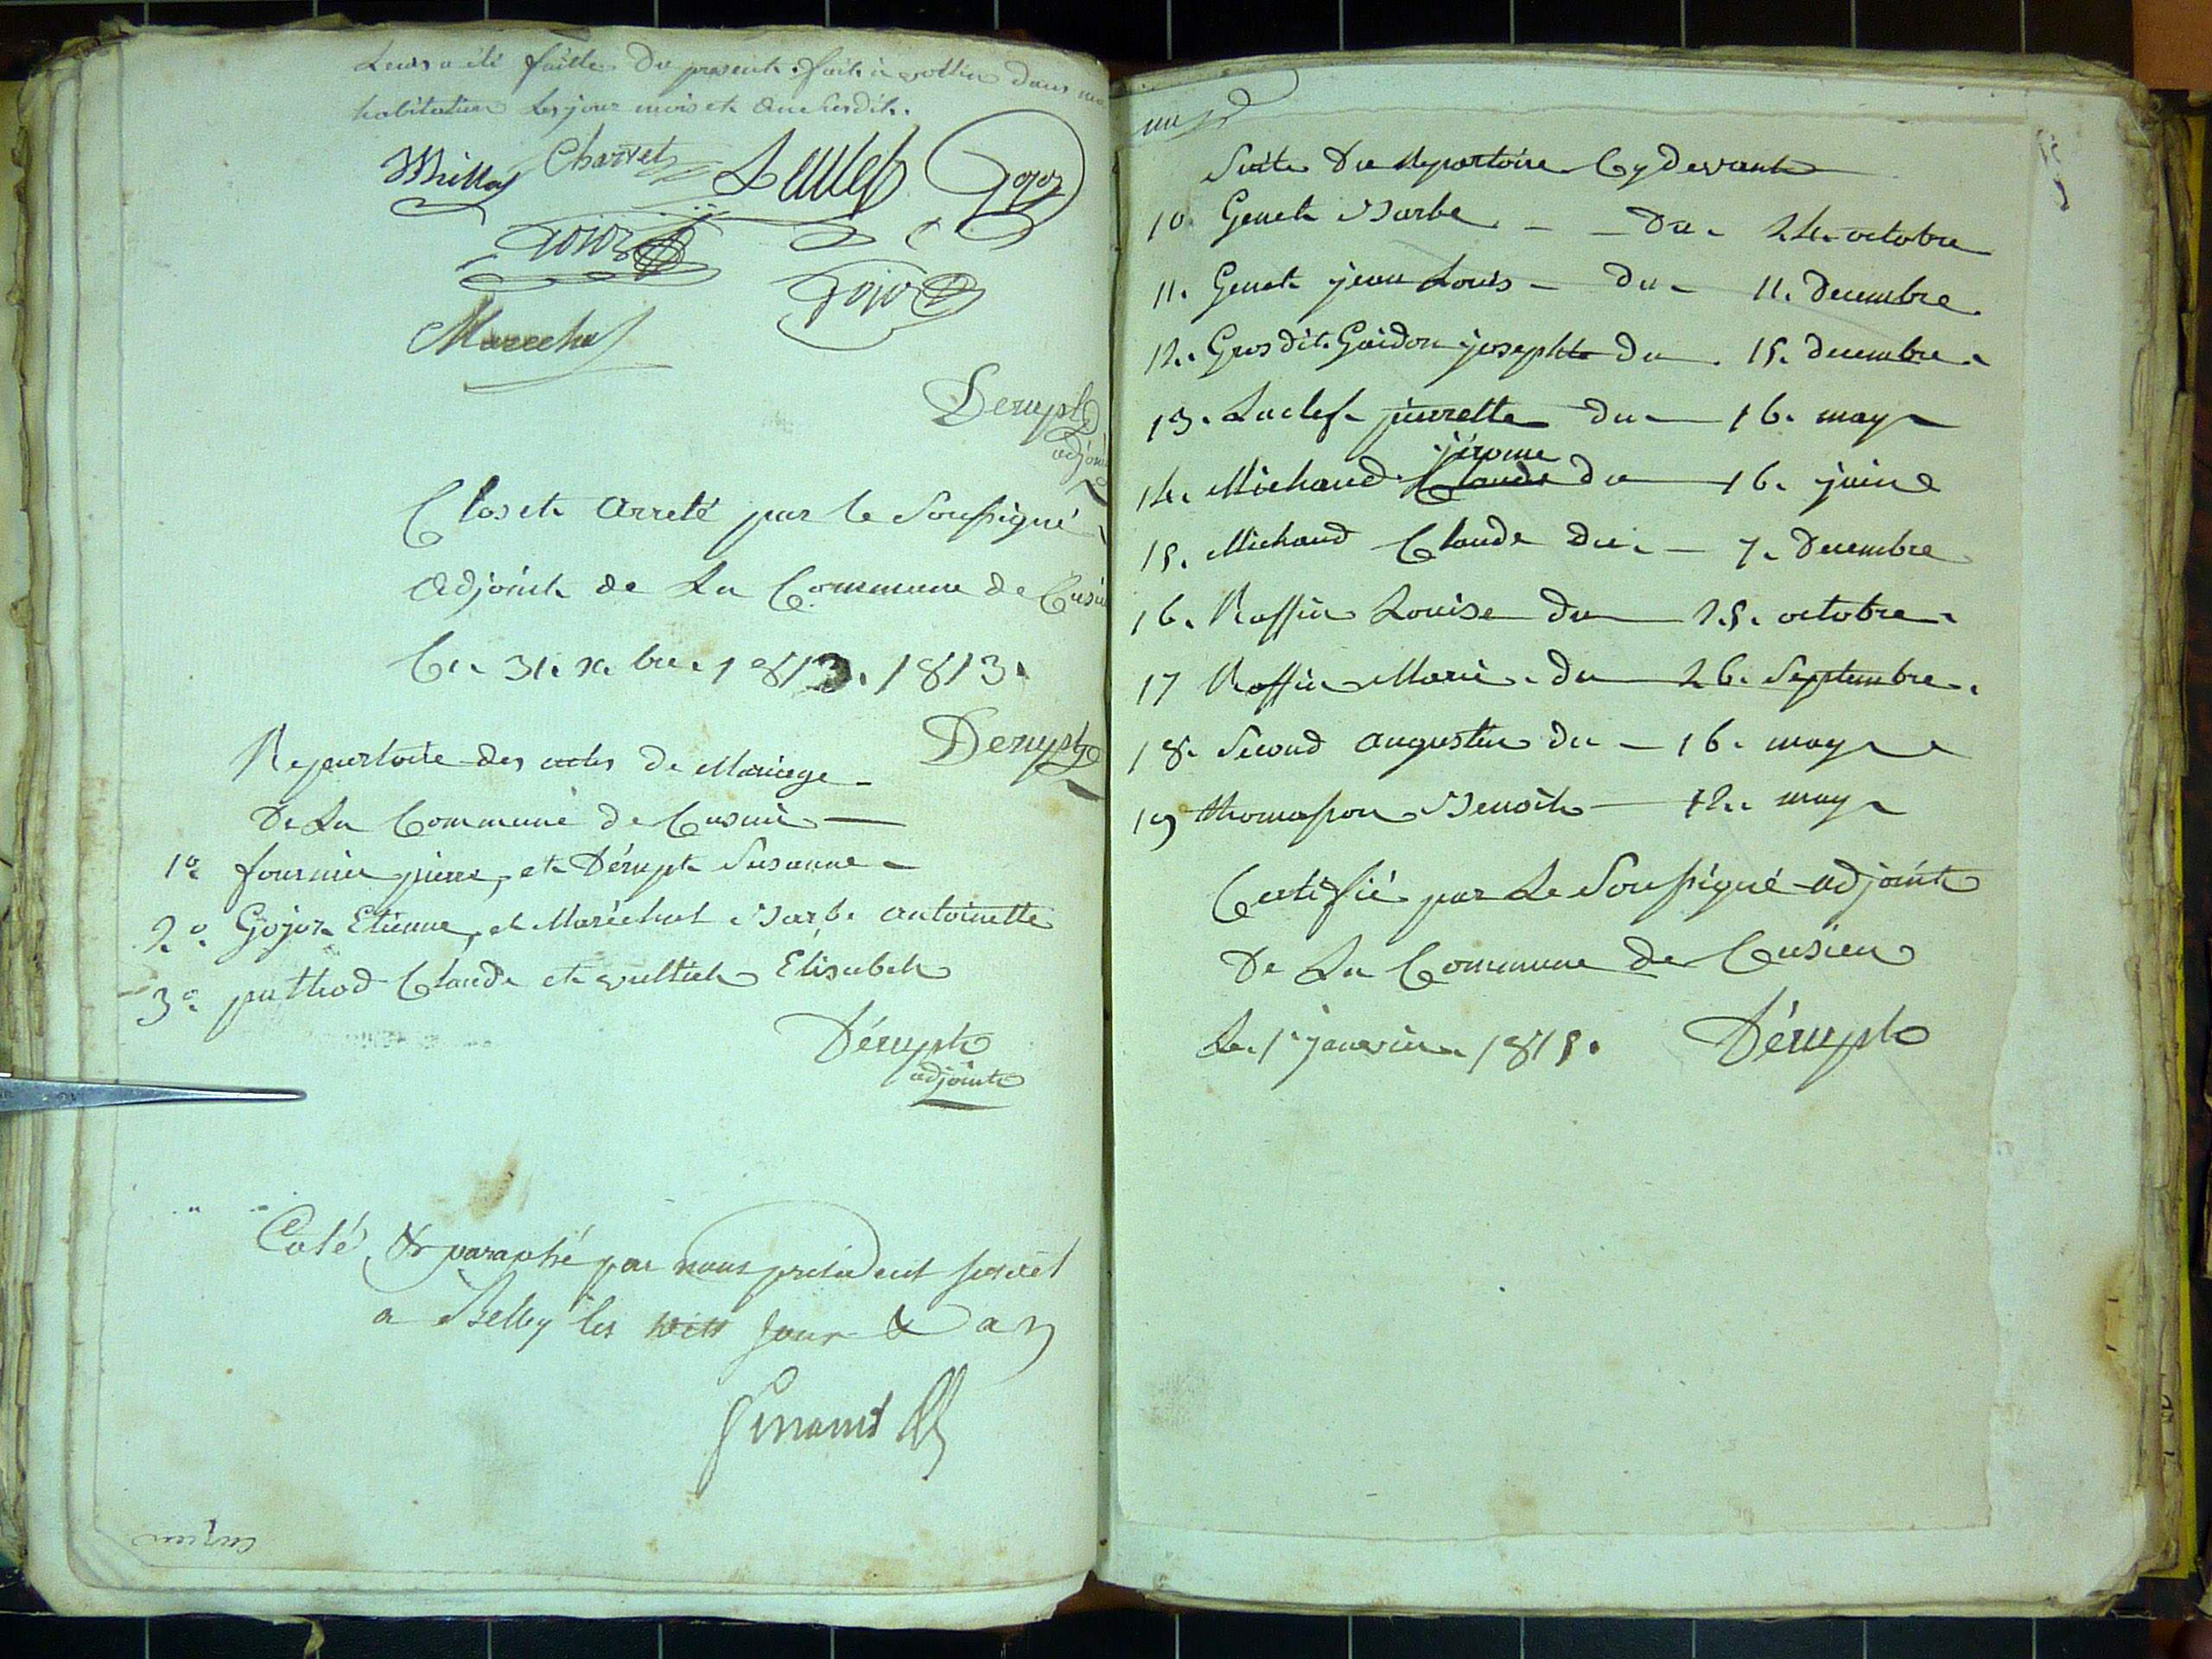 Leurs a été faitte du present. fait à vollin dans
habitation les jour mois et an susdit.
Millet Charvet Goyoz
Goyoz Goyoz
Marechal
Derupt
adjoint
Clos et arreté par le soussigné
adjoint de La Commune de
Ce. 31. xbre. 1813. 1813.
Derupt
Repertoire des actes de Mariage
De La Commune de Cusin
1º fournier pierre, et Dérupt Susanne
2º. Gojoz Etienne, et Maréchal Barbe antoinette
3º pathod Claude et vulliet Elisabeth
Dérupt
adjoint
Coté & paraphé par nous president
a Belley les jour & an
cuzieu
Suite du repertoire Cy devant
10. Genet Barbe - - du - 24. octobre
11. Genet jean Louis - du - 11. decembre
12. Gros dit Guidon josephte du 15. decembre
13. Laclef pierrette du 16. may
jérome
14. Michaud Claude du 16. juin
15. Michaud Claude du - 7. decembre
16. Roffin Louise du 25. octobre
17 Roffin Marie. du 26. Septembre.
18. Second augustin du - 16. may
19 thomasson Benoit 12. may
Certifié par Le Soussigné adjoint
De La Commune de Cusieu
Le. 1er janvier 1815. Dérupt